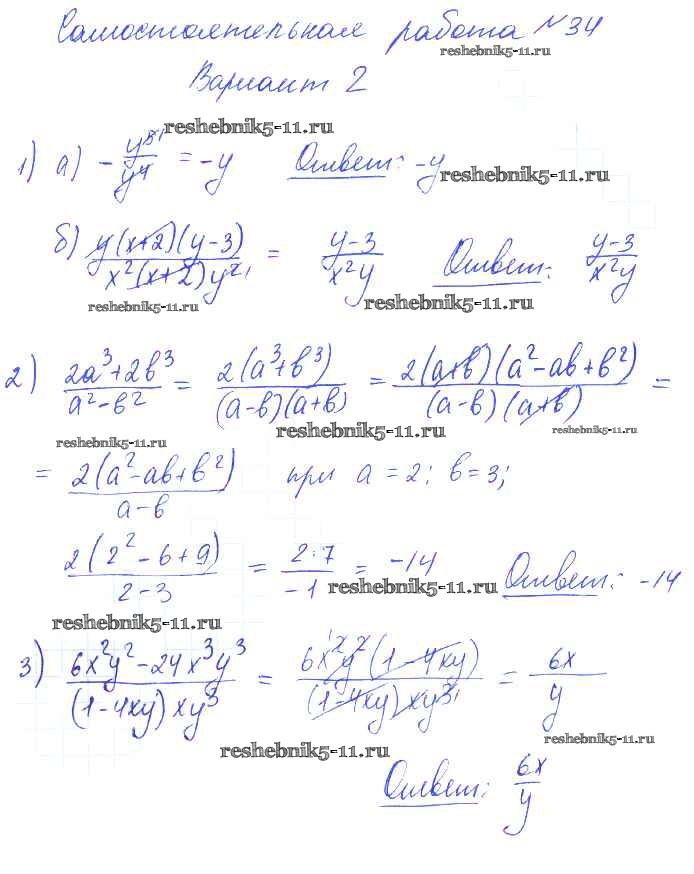 Самостоятельная работа №34
reshebnik5-11.ru
Вариант 2
reshebnik5-11.ru
1) а) - y⁵/y⁴ = -y Ответ: -y
reshebnik5-11.ru
б) y(x+2)(y-3)/x²(x+2)y² = y-3/x²y Ответ: y-3/x²y
reshebnik5-11.ru reshebnik5-11.ru
2) 2a³+2b³/a²-b² = 2(a³+b³)/(a-b)(a+b) = 2(a+b)(a²-ab+b²)/(a-b)(a+b) =
reshebnik5-11.ru reshebnik5-11.ru reshebnik5-11.ru
= 2(a²-ab+b²)/a-b при a=2; b=3;
2(2²-6+9)/2-3 = 2·7/-1 = -14 Ответ: -14
reshebnik5-11.ru
reshebnik5-11.ru
3) 6x²y²-24x³y³/(1-4xy)xy³ = 6x²y²(1-4xy)/(1-4xy)xy³ = 6x/y
reshebnik5-11.ru reshebnik5-11.ru
Ответ: 6x/y